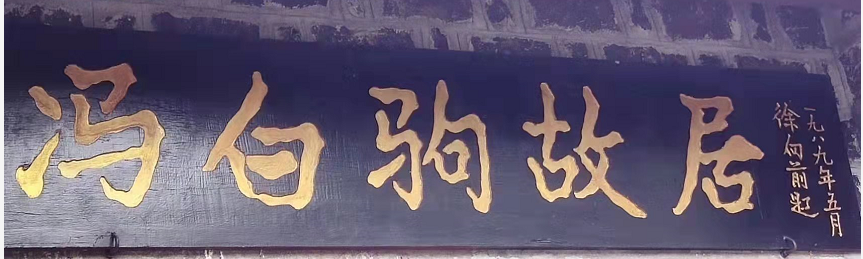 冯白驹故居
一九八九年五月
徐向前题